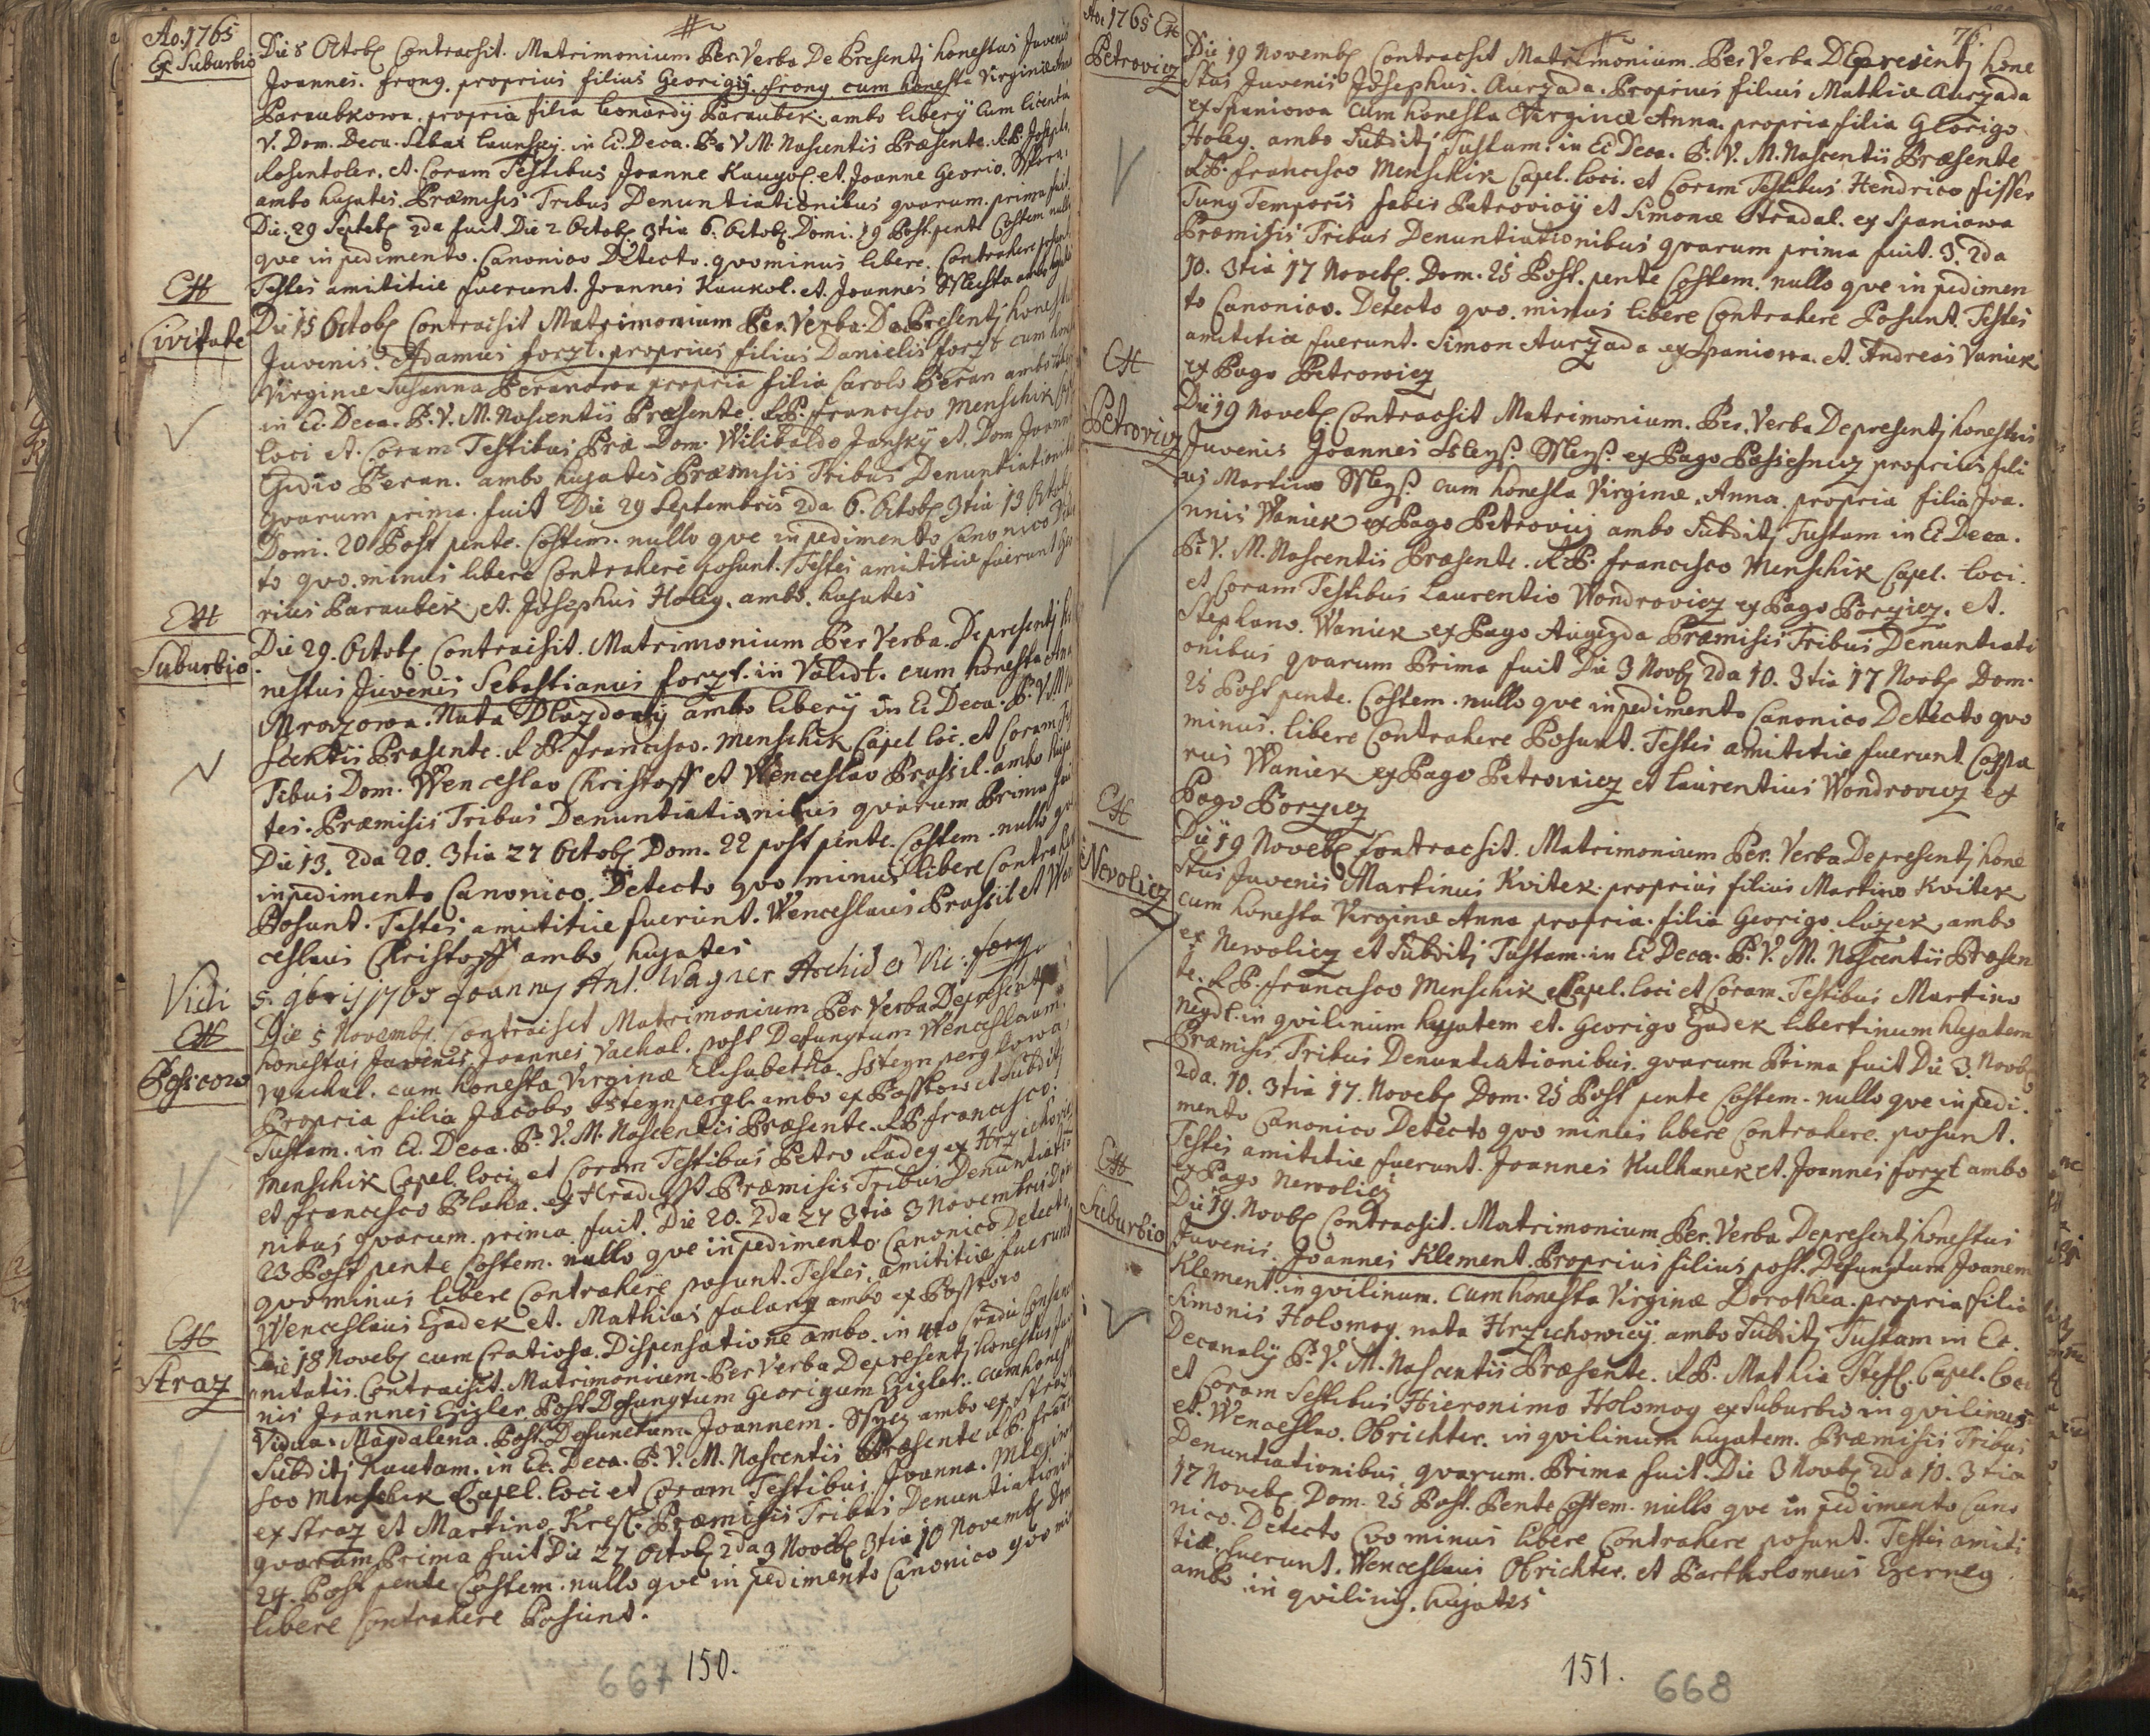 Ao. 1765
Ex Suburbio
Die 8 Octob Contracsit. Matrimonium Per Verba De Presentj honestus Juvenis
Joannes. frong. proprius filius Georigij. frong cum honesta Virginæ
Paraubkowa. propria filia Leonardÿ Paraubek. ambo liberÿ Cum licentia
V. Dom. Deca. in Ec. Deca. B. V. M. Nascentis Præsente. R.P. Josepho
Rosentoler. et. Coram Testibus Joanne Kaugol. et. Joanne Georio.
ambo hujates. Præmisis Tribus Denuntiationibus qvarum. prima fuit
Die. 29 Septeb 2da fuit Die 2 Octob 3tia 6. Octob Domi. 19 Post. pente Costem nullo
qve inpedimento. Canonico Detecto. qvominus libere. Contrahere posunt
Testes amititiæ fuerunt. Joannes Kaukol. et. Joannes Wlchta ambo
Ex
Civitate
Die 15 Octob Contracsit Matrimonium Per. Verba. De Presentj honestus
Juvenis. Adamus forzt. proprius filius Danielis forzt cum
Virginæ Susanna Peranowa propria filia Carolo Peran ambo
in Ec. Deca. B. V. M. Nascentis Præsente. R.P. francisco Menschik
loci et. Coram Testibus Præ Dom. Wilibaldo Jansky et. Dom Joanne
Egidio Peran. ambo hujates Præmisis Tribus Denuntiationibus
qvarum prima. fuit Die 29 Septembris 2da 6. Octob 3tia 13 Octob
Domi. 20 Post pente. Costem. nullo qve inpedimento Canonico
to qvo. minus libere Contrahere posunt. Testes amititiæ fuerunt
rius Paraubek et. Josephus Holey. ambo. hujates
Ex
Suburbio
Die 29. Octob Contracsit. Matrimonium Per Verba. Depresentj
nestus Juvenis Sebastianus forzt. in Validt. cum honesta
Mrazowa. Nata ambo liberÿ in Ec Deca. B. V. M
Præsente. R.P. francisco. Menschik Capel loci. et Coram
Tibus Dom. Wenceslao Christoff et Wenceslao Prassil. ambo
tes. Præmisis Tribus Denuntiationibus qvarum Prima
Die 13. 2da 20. 3tia 27 Octob Dom. 22 post pente. Costem. nullo
inpedimento Canonico. Detecto qvo minus libere Contrahere
Posunt. Testes amititiæ fuerunt. Wenceslaus Prassil et Wen
ceslaus Christoff ambo hujates
Vidi
5. 9bris 1765 Joannes Ant. Wagner Archid. et Vic. for
Ex
Die 5 Novemb. Contracsit Matrimonium Per Verba Depresentj
honestus Juvenis Joannes Vachal. post Defunctum Wenceslaum
Vachal. cum honesta Virginæ Elisabetha.
Propria filia Jacobo ambo ex Posskow et Subditj
Tustam. in Ec. Deca. B. V. M. Nascentis Præsente. R.P. francisco.
Menschik Capel. loci, et Coram Testibus Petro Radey ex
et francisco Blaha. ex Præmisis Tribus Denuntiatio
nibus qvarum. prima fuit. Die 20. 2da 27 3tia 3 Novembris
23 Post pente Costem. nullo qve inpedimento. Canonico Detecto,
qvominus libere Contrahere posunt. Testes. amititiæ fuerunt
Wenceslaus Ezadek et. Mathias ambo ex Posskow
Ex
Straz
Die 18 Noveb cum Gratiosa. Dispensatione ambo. in 4to Gradu
nitatis. Contracsit. Matrimonium. Per Verba Depresentj honestus
nis Joannes Ezigler. Post Defungtum Georigum Ezigler. cum
Vidua. Magdalena. Post Defunctum Joannem. ambo ex Straz
Subditj Kautam. in Ec. Deca. B. V. M. Nascentis Præsente R.P. fran
sco Menschik Capel. loci et Coram Testibus. Joanne.
ex Straz et Martino. Præmisis Tribus Denuntiationib
qvarum Prima fuit Die 27 Octob 2da 3 Noveb 3tia 10 Novemb Dom
24. Post pente Costem. nullo qve inpedimento Canonico qvo
libere Contrahere Posunt.
667 150.
Ao: 1765 Ex
Petrovicz
76.
Die 19 Novemb Contracsit Matrimonium. Per Verba Depresentj hone
stus Juvenis Josephus. Aurzada. Proprius filius Mathiæ Aurzada
ex Spaniowa Cum honesta Virginæ Anna. propria filia Georigo
Holey. ambo Subditj Tustam. in Ec Deca. B. V. M. Nascentis Præsente
R.P. francisco Menschik Capel. loci. et Coram Testibus Hendrico fisser
Tung Temporis fabis Petrovicij et Simonæ Stradal. ex Spaniowa
Præmisis Tribus Denuntiationibus qvarum prima fuit. 3. 2da
10. 3tia 17 Noveb. Dom. 25 Post. pente Costem. nullo qve inpedimen
to Canonico. Detecto qvo. minus libere Contrahere Posunt. Testes
amititiæ fuerunt. Simon Aurzada ex Spaniowa. et. Andreas Vaniek
ex Pago Petrowicz
Ex
Petrovicz
Die 19 Noveb. Contracsit Matrimonium. Per. Verba Depresentj honestus
Juvenis Joannes ex Pago proprius fili
us Martino cum honesta Virginæ. Anna. propria filia Joa.
nnis Waniek ex Pago Petrovicz ambo Subditj Tustam in Ec Deca.
B. V. M. Nascentis Præsente. R.P. francisco Menschik Capel. loci.
et Coram Testibus Laurentio Wondrovicz ex Pago Borzicz. et.
Stephano. Waniek ex Pago Augezda Præmisis Tribus Denuntiati
onibus qvarum Prima fuit Die 3 Noveb 2da 10. 3tia 17 Noveb Dom.
25 Post pente. Costem. nullo qve inpedimento Canonico Detecto qvo
minus. libere Contrahere Posunt. Testes amititiæ fuerunt Caspa
rus Waniek ex Pago Petrovicz et Laurentius Wondrovicz ex
Pago Borzicz
Ex
Nevolicz
Die 19 Noveb Contracsit. Matrimonium Per. Verba Depresentj hone
stus Juvenis Martinus Kvitek. proprius filius Martino Kvitek
cum honesta Virginæ Anna propria. filia Georigo. ambo
ex Newolicz et Subditj Tustam. in Ec Deca. B. V. M. Nascentis Præsen
te. R.P. francisco Menschik Capel. loci et Coram. Testibus Martino
in qvilinum hujatem et. Georigo Ezadek libertinum hujatem
Præmisis Tribus Denuntiationibus. qvarum Prima fuit Die 3. Noveb
2da. 10. 3tia 17. Noveb Dom. 25 Post pente Costem. nullo qve inpedi.
mento Canonico Detecto qvo minus libere Contrahere. posunt.
Testes amititiæ fuerunt. Joannes Kulhanek et. Joannes forzt ambo
ex Pago Newolicz
Ex
Suburbio
Die 19. Noveb Contracsit. Matrimonium. Per. Verba Depresentj honestus
Juvenis. Joannes Klement. Proprius filius post. Defungtum Joanem
Klement. in qvilinum. Cum honesta Virginæ Dorothea. propria filia
Simonis Holomog. nata Hrzichowicij ambo Subditj Tustam in Ec.
Decanalÿ B. V. M. Nascentis Præsente. R.P. Mathia Capel. Loci
et Coram Testibus Hieronimo Holomog ex Suburbio in qvilinus
et. Wenceslao. Obrichter. in qvilinum hujatem. Præmisis Tribus
Denuntiationibus qvarum. Prima fuit. Die 3 Noveb 2da 10. 3tia
17 Noveb. Dom. 25 Post. Pente Costem. nullo qve inpedimento Cano
nico. Detecto Qvominus libere Contrahere posunt. Testes amiti
tiæ. fuerunt. Wenceslaus Obrichter. et Bartholomeus Ezerneg.
ambo in qvilinij. hujates
151. 668